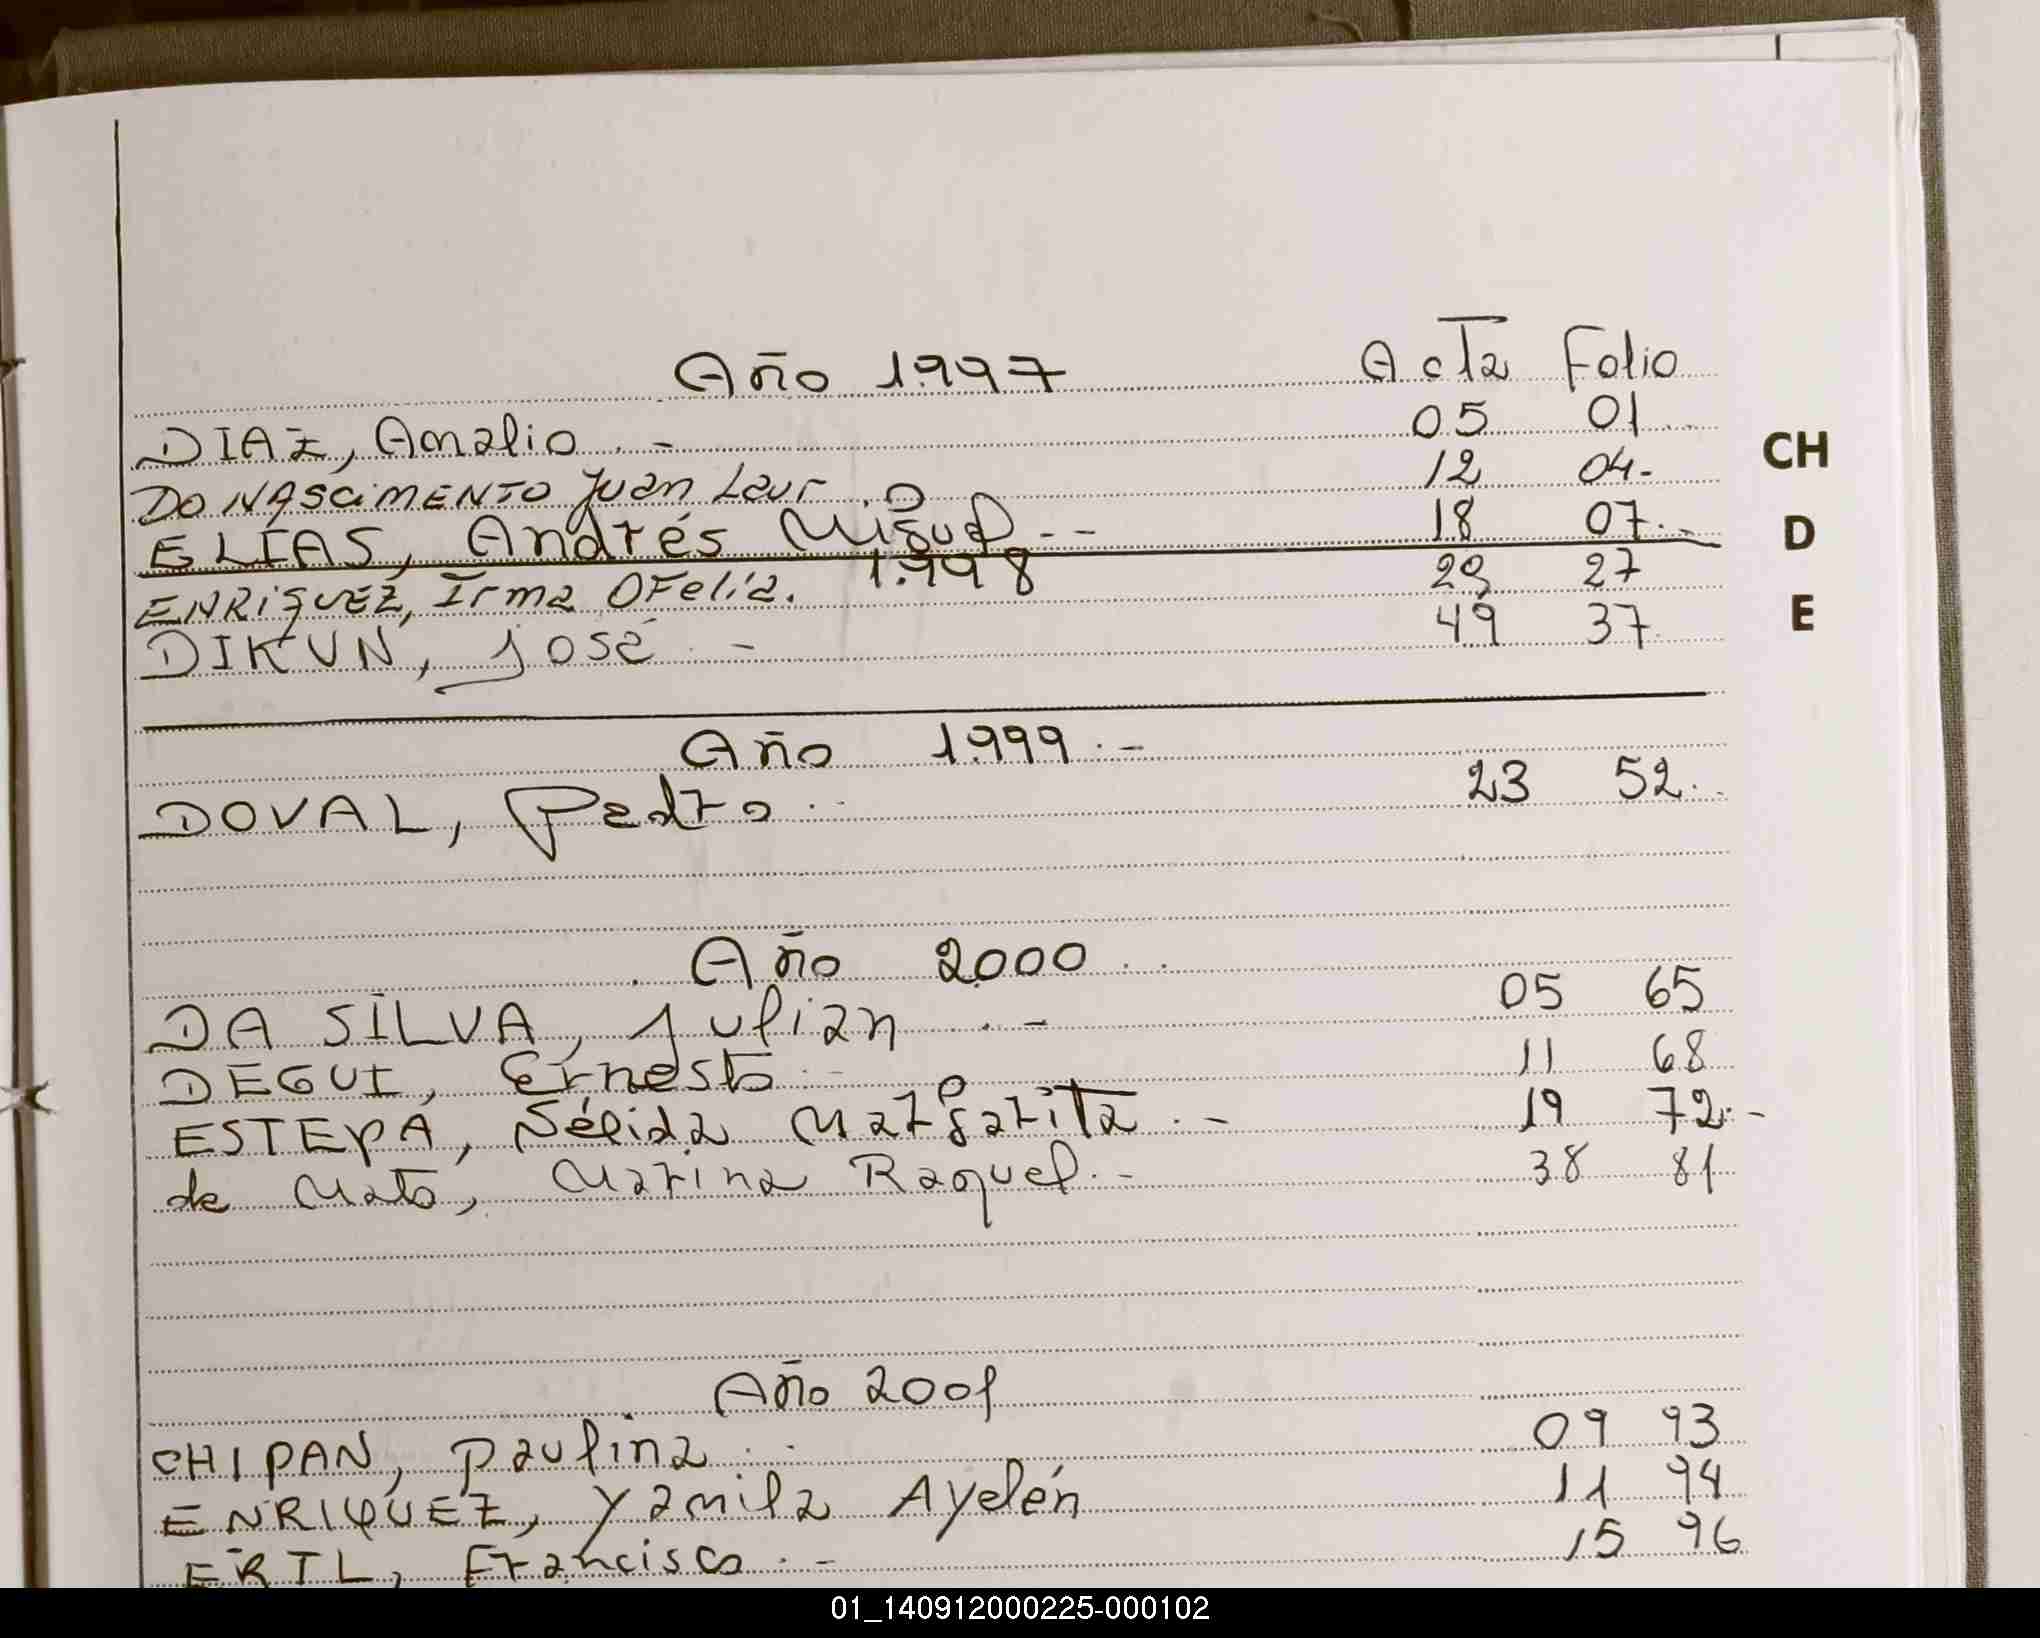 Año 1.997 Acta Folio
DIAZ, Amalio . - 05 01
DO NASCIMENTO Juan Laur . 12 04-
ELIAS, Andrés Miguel . - - 18 07. -
1.998
ENRIQUEZ, Irma OFelia. 29 27
DIKUN, José . - 49 37
Año 1.999 . -
DOVAL, Pedro . . 23 52.
Año 2.000 . .
DA SILVA, Julian . . - 05 65
DEGUI, Ernesto . - 11 68
ESTEPA, Nélida Margarita . - 19 72. -
de Mato, Marina Raquel . - 38 81
Año 2001
CHIPAN, Paulina . . 09 93
ENRIQUEZ, Yamila Ayelén 11 94
ERTL, Francisco . - 15 96
CH
D
E
01_140912000225-000102